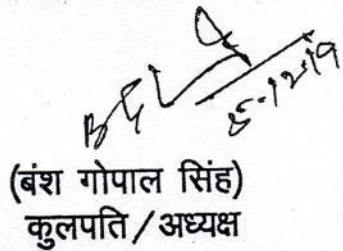 5-12-19
(बंश गोपाल सिंह)
कुलपति/अध्यक्ष